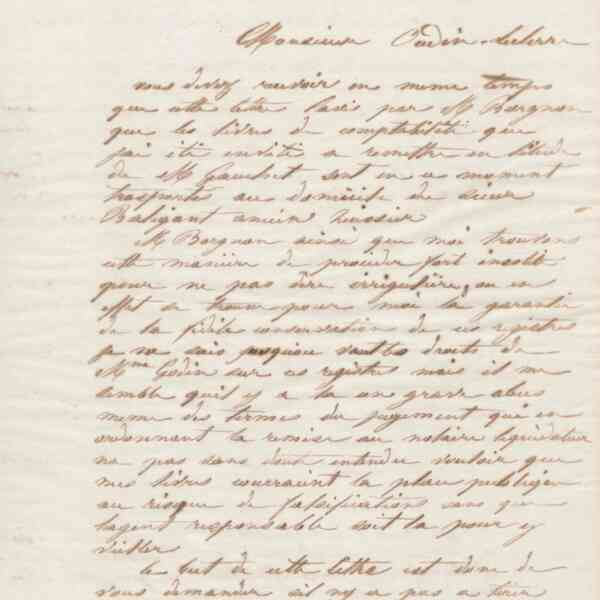 Monsieur Oudin-Leclerc
vous devez recevoir en meme temps
que cette lettre l'avis par Mr Borgnon
que les livres de comptabilité que
j'ai été invité a remettre en l'étude
de Mr Gauchet sont en ce moment
trasportés au domicile du sieur
Baligant ancien huissier
Mr Borgnon ainsi que moi trouvons
cette maniere de procéder fort insolite
pour ne pas dire irrégulière, ou en
effet se trouve pour moi la garantie
de la fidele conservation de ces registres
je ne sais jusquou vont les droits de
Mme Godin sur ces registres mais il me
semble quil y a la un grave abus
meme des termes du jugement qui en
ordonnant la remise au notaire liquidateur
na pas sans doute entendu vouloir que
mes livres courraient la place publique
au risque de falsifications sans que
lagent responsable soit la pour y
veiller
le but de cette lettre est donc de
vous demander sil ny a pas a tirer